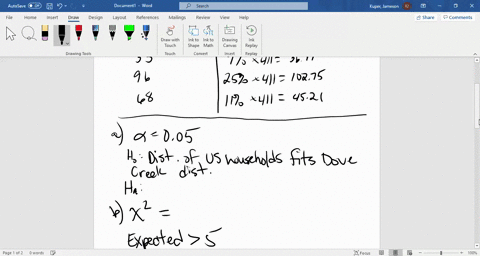 AutoSave Off Document1 - Word Search Kuper, Jameson
File Home Insert Draw Design Layout References Mailings Review View Help Share Comments
Draw with Touch Ink to Shape Ink to Math Drawing Canvas Ink Replay
Drawing Tools Convert Insert Replay
96 25% × 411 = 102.75
68 11% × 411 = 45.21
a) α = 0.05
H₀: Dist. of US households fits Dove
Creek dist.
Hₐ:
b) x² =
Expected > 5
Page 1 of 2 0 words Focus 100%